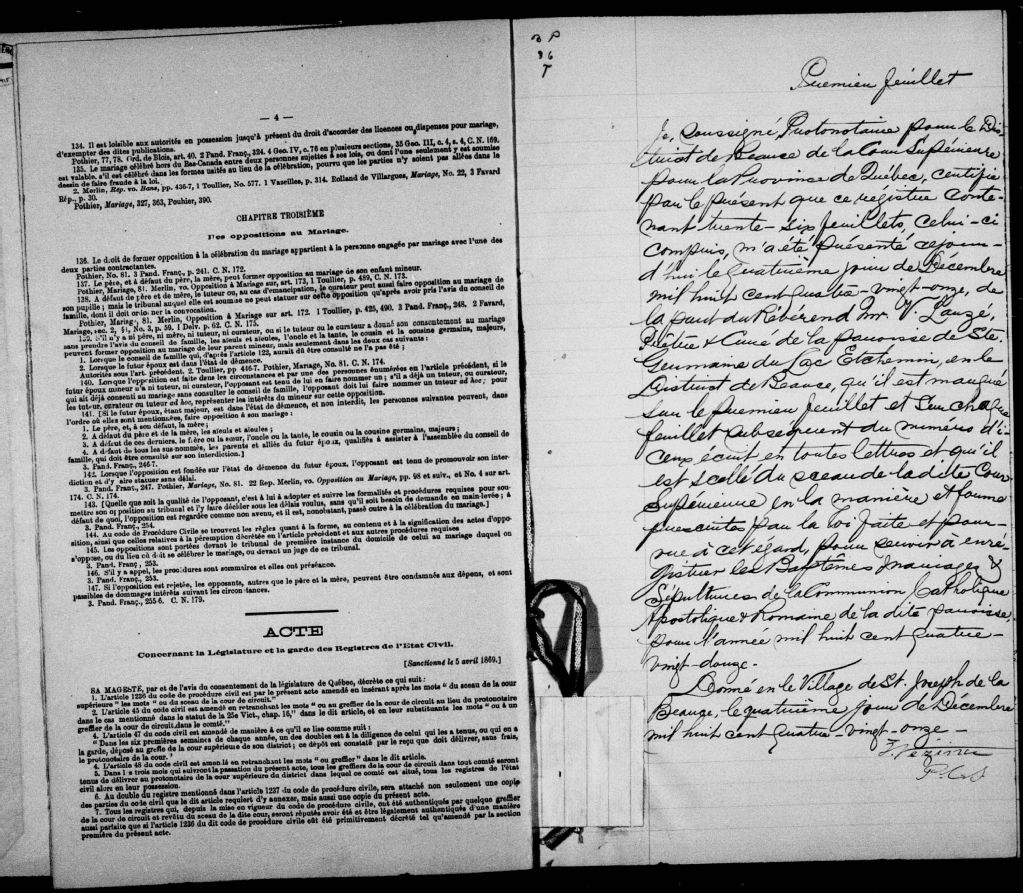 — 4 —
134. Il est loisible aux autorités en possession jusqu'à présent du droit d'accorder des licences ou dispenses pour mariage,
d'exempter des dites publications.
Pothier, 77, 78. Ord. de Blois, art. 40. 2 Pand. Franç., 324. 4 Geo. IV, c. 76 en plusieurs sections, 35 Geo. III, c. 4, s. 4, C. N. 169.
135. Le mariage célébré hors du Bas-Canada entre deux personnes sujettes à ses lois, ou dont l'une seulement y est soumise
est valable, s'il est célébré dans les formes usités au lieu de la célébration, pourvu que les parties n'y soient pas allées dans le
dessin de faire fraude à la loi.
2. Merlin, Rep. vo. Bans, pp. 436-7, 1 Toullier, No. 577. 1 Vazeilles, p. 314. Rolland de Villargues, Mariage, No. 22, 3 Favard
Rép., p. 30.
Pothier, Mariage, 327, 363, Pouhier, 390.
CHAPITRE TROISIÈME
Des oppositions au Mariage.
136. Le droit de former opposition à la célébration du mariage appartient à la personne engagée par mariage avec l'une des
deux parties contractantes.
Pothier, No. 81. 3 Pand. Franç., p. 241. C. N. 172.
137. Le père, et à défaut du père, la mère, peut former opposition au mariage de son enfant mineur.
Pothier, Mariage, 81. Merlin, vo. Opposition à Mariage sur, art. 173, 1 Toullier, p. 489, C. N. 173.
138. A défaut de père et de mère, le tuteur ou, au cas d'émancipation, le curateur peut aussi faire opposition au mariage de
son pupille; mais le tribunal auquel elle est soumise ne peut statuer sur cette opposition qu'après avoir pris l'avis du conseil de
famille, dont il doit ordonner la convocation.
Pothier, Mariage, 81. Merlin, Opposition à Mariage sur art. 172. 1 Toullier, p. 425, 490. 3 Pand. Franç., 248. 2 Favard,
Mariage, sec. 2, §1, No. 3, p. 59. 1 Delv. p. 62. C. N. 175.
139. S'il n'y a ni père, ni mère, ni tuteur, ni curateur, ou si le tuteur ou le curateur a donné son consentement au mariage
sans prendre l'avis du conseil de famille, les aïeuls et aïeules, l'oncle et la tante, le cousin et la cousine germains, majeurs,
peuvent former opposition au mariage de leur parent mineur, mais seulement dans les deux cas suivants :
1. Lorsque le conseil de famille qui, d'après l'article 122, aurait dû être consulté ne l'a pas été ;
2. Lorsque le futur époux est dans l'état de démence.
Autorités sous l'art. précédent. 2. Toullier, pp 446-7. Pothier, Mariage, No. 81. C. N. 174.
140. Lorsque l'opposition est faite dans les circonstances et par une des personnes énumérées en l'article précédent, si le
futur époux mineur n'a ni tuteur, ni curateur, l'opposant est tenu de lui en faire nommer un; s'il a déjà un tuteur, ou curateur,
qui ait déjà consenti au mariage sans consulter le conseil de famille, l'opposant doit lui faire nommer un tuteur ad hoc; pour
les tuteur, curateur ou tuteur ad hoc, représenter les intérêts du mineur sur cette opposition.
141. [Si le futur époux, étant majeur, est dans l'état de démence, et non interdit, les personnes suivantes peuvent, dans
l'ordre où elles sont mentionnées, faire opposition à son mariage :
1. Le père, et, à son défaut, la mère;
2. A défaut du père et de la mère, les aïeuls et aïeules;
3. A défaut de ces derniers, le frère ou la sœur, l'oncle ou la tante, le cousin ou la cousine germains, majeurs;
4. A défaut de tous les sus nommés, les parents et alliés du futur époux, qualifiés à assister à l'assemblée du conseil de
famille, qui doit être consulté sur son interdiction.]
3. Pand. Franç., 246-7.
142. Lorsque l'opposition est fondée sur l'état de démence du futur époux, l'opposant est tenu de promouvoir son inter-
diction et d'y faire statuer sans délai.
3. Pand. Franç., 247. Pothier, Mariage, No. 81. 22 Rep. Merlin, vo. Opposition au Mariage, pp. 98 et suiv., et No. 4 sur art.
174. C. N. 174.
143. [Quelle que soit la qualité de l'opposant, c'est à lui à adopter et suivre les formalités et procédures requises pour sou-
mettre son opposition au tribunal et l'y faire décider sous les délais voulus, sans qu'il soit besoin de demande en main-levée; à
défaut de quoi, l'opposition est regardée comme non avenu, et il est, nonobstant, passé outre à la célébration du mariage.]
3. Pand. Franç., 254.
144. Au code de Procédure Civile se trouvent les règles quant à la forme, au contenu et à la signification des actes d'oppo-
sition, ainsi que celles relatives à la péremption décrétée en l'article précédent et aux autres procédures requises
145. Les oppositions sont portées devant le tribunal de première instance du domicile de celui au mariage duquel on
s'oppose, ou du lieu où doit se célébrer le mariage, ou devant un juge de ce tribunal.
3. Pand. Franç., 253.
146. S'il y a appel, les procédures sont sommaires et elles ont préséance.
3. Pand. Franç., 253.
147. Si l'opposition est rejetée, les opposants, autres que le père et la mère, peuvent être condamnés aux dépens, et sont
passibles de dommages intérêts suivant les circonstances.
3. Pand. Franç., 255-6. C. N. 179.
ACTE
Concernant la Législature et la garde des Registres de l'Etat Civil.
[Sanctionné le 5 avril 1869.]
SA MAGESTE, par et de l'avis du consentement de la législature de Québec, décrète ce qui suit :
1. L'article 1236 du code de procédure civil est par le présent acte amendé en insérant après les mots " du sceau de la cour
supérieure " les mots " ou du sceau de la cour de circuit."
2. L'article 45 du code civil est amendé en retranchant les mots " ou au greffier de la cour de circuit au lieu du protonotaire
dans le cas mentionné dans le statut de la 25e Vict., chap. 16," dans le dit article, et en leur substituants les mots " ou à un
greffier de la cour de circuit dans le comté."
4. L'article 47 du code civil est amendé de manière à ce qu'il se lise comme suit :
" Dans les six premières semaines de chaque année, un des doubles est à la diligence de celui qui les a tenus, ou qui en a
la garde, déposé au greffe de la cour supérieure de son district; ce dépôt est constaté par le reçu que doit délivrer, sans frais,
le protonotaire de la cour."
4. L'article 48 du code civil est amendé en retranchant les mots " ou greffier " dans le dit article.
5. Dans les trois mois qui suivront la passation du présent acte, tous les greffiers de la cour de circuit dans tout comté seront
tenus de délivrer au protonotaire de la cour supérieure du district dans lequel ce comté est situé, tous les registres de l'état
civil alors en leur possession.
6. Au double du registre mentionné dans l'article 1237 du code de procédure civile, sera attaché non seulement une copie
des parties du code civil que le dit article requiert d'y annexer, mais aussi une copie du présent acte.
7. Tous les registres qui, depuis la mise en vigueur du code de procédure civile, ont été authentiqués par quelque greffier
de la cour de circuit et revêtu du sceau de la dite cour, seront réputés avoir été et être légalement authentiqués d'une manière
aussi parfaite que si l'article 1236 du dit code de procédure civile eût été primitivement décrété tel qu'amendé par la section
première du présent acte.
3 P
86
T
Premier feuillet
Je, soussigné, Protonotaire pour le Dis-
trict de Beauce de la Cour Supérieure
pour la Province de Québec, certifie
par le présent que ce régistre conte-
nant trente-six feuillets, celui-ci
compris, m'a été présenté cejour-
d'hui le quatrième jour de Décembre
mil huit cent quatre-vingt-onze, de
la part du Révérend Mr. V. Lauzé,
Prêtre & Curé de la paroisse de Ste.
Germaine du Lac Etchemin, en le
District de Beauce, qu'il est marqué
sur le premier feuillet et sur chaque
feuillet subsequent du numéro d'i-
ceux écrit en toutes lettres et qu'il
est scellé du sceau de la dite Cour
Supérieure en la manière et forme
prescrites par la loi faite et pour-
vue à cet égard, pour servir à enré-
gistrer les Baptêmes, Mariages &
Sépultures de la Communion Catholique
Apostolique & Romaine de la dite paroisse
pour l'année mil huit cent quatre-
vingt-douze.
Donné en le Village de St. Joseph de la
Beauce, le quatrième jour de Décembre
mil huit cent quatre-vingt-onze-
P.C.S